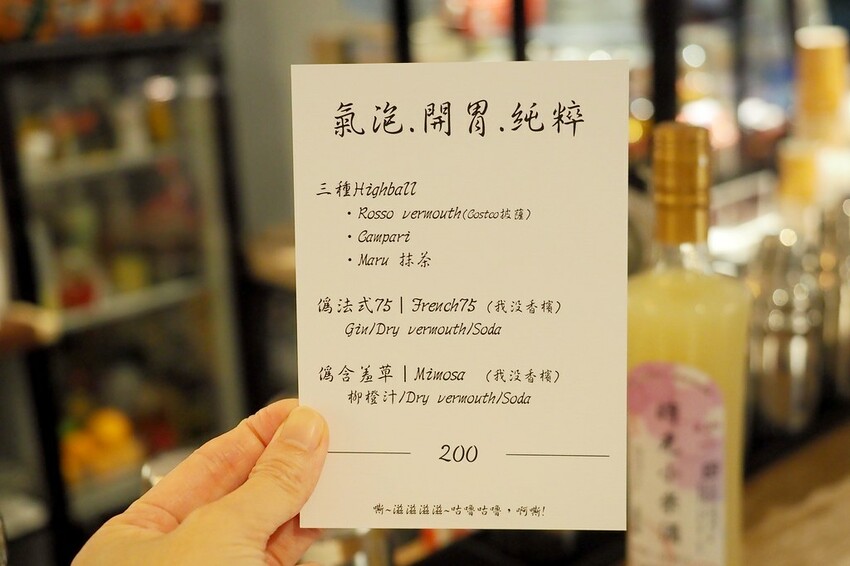 氣泡.開胃.純粹
三種Highball
・Rosso vermouth(Costco披薩)
・Campari
・Maru 抹茶
偽法式75 | French75 (我没香檳)
Gin/Dry vermouth/Soda
偽含羞草 | Mimosa (我没香檳)
柳橙汁/Dry vermouth/Soda
200
嘶~滋滋滋滋~咕嚕咕嚕，啊嘶!